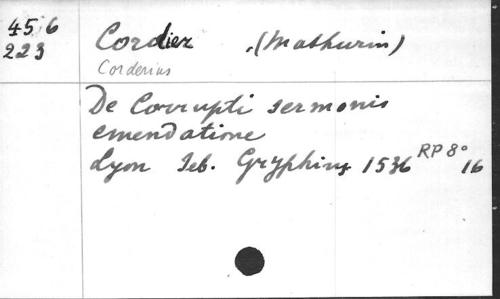 4516
223
Cordier (Mathurin)
Corderius
De Corrupti sermonis
emendatione
Lyon Seb. Gryphius 1536 RP 8° 16